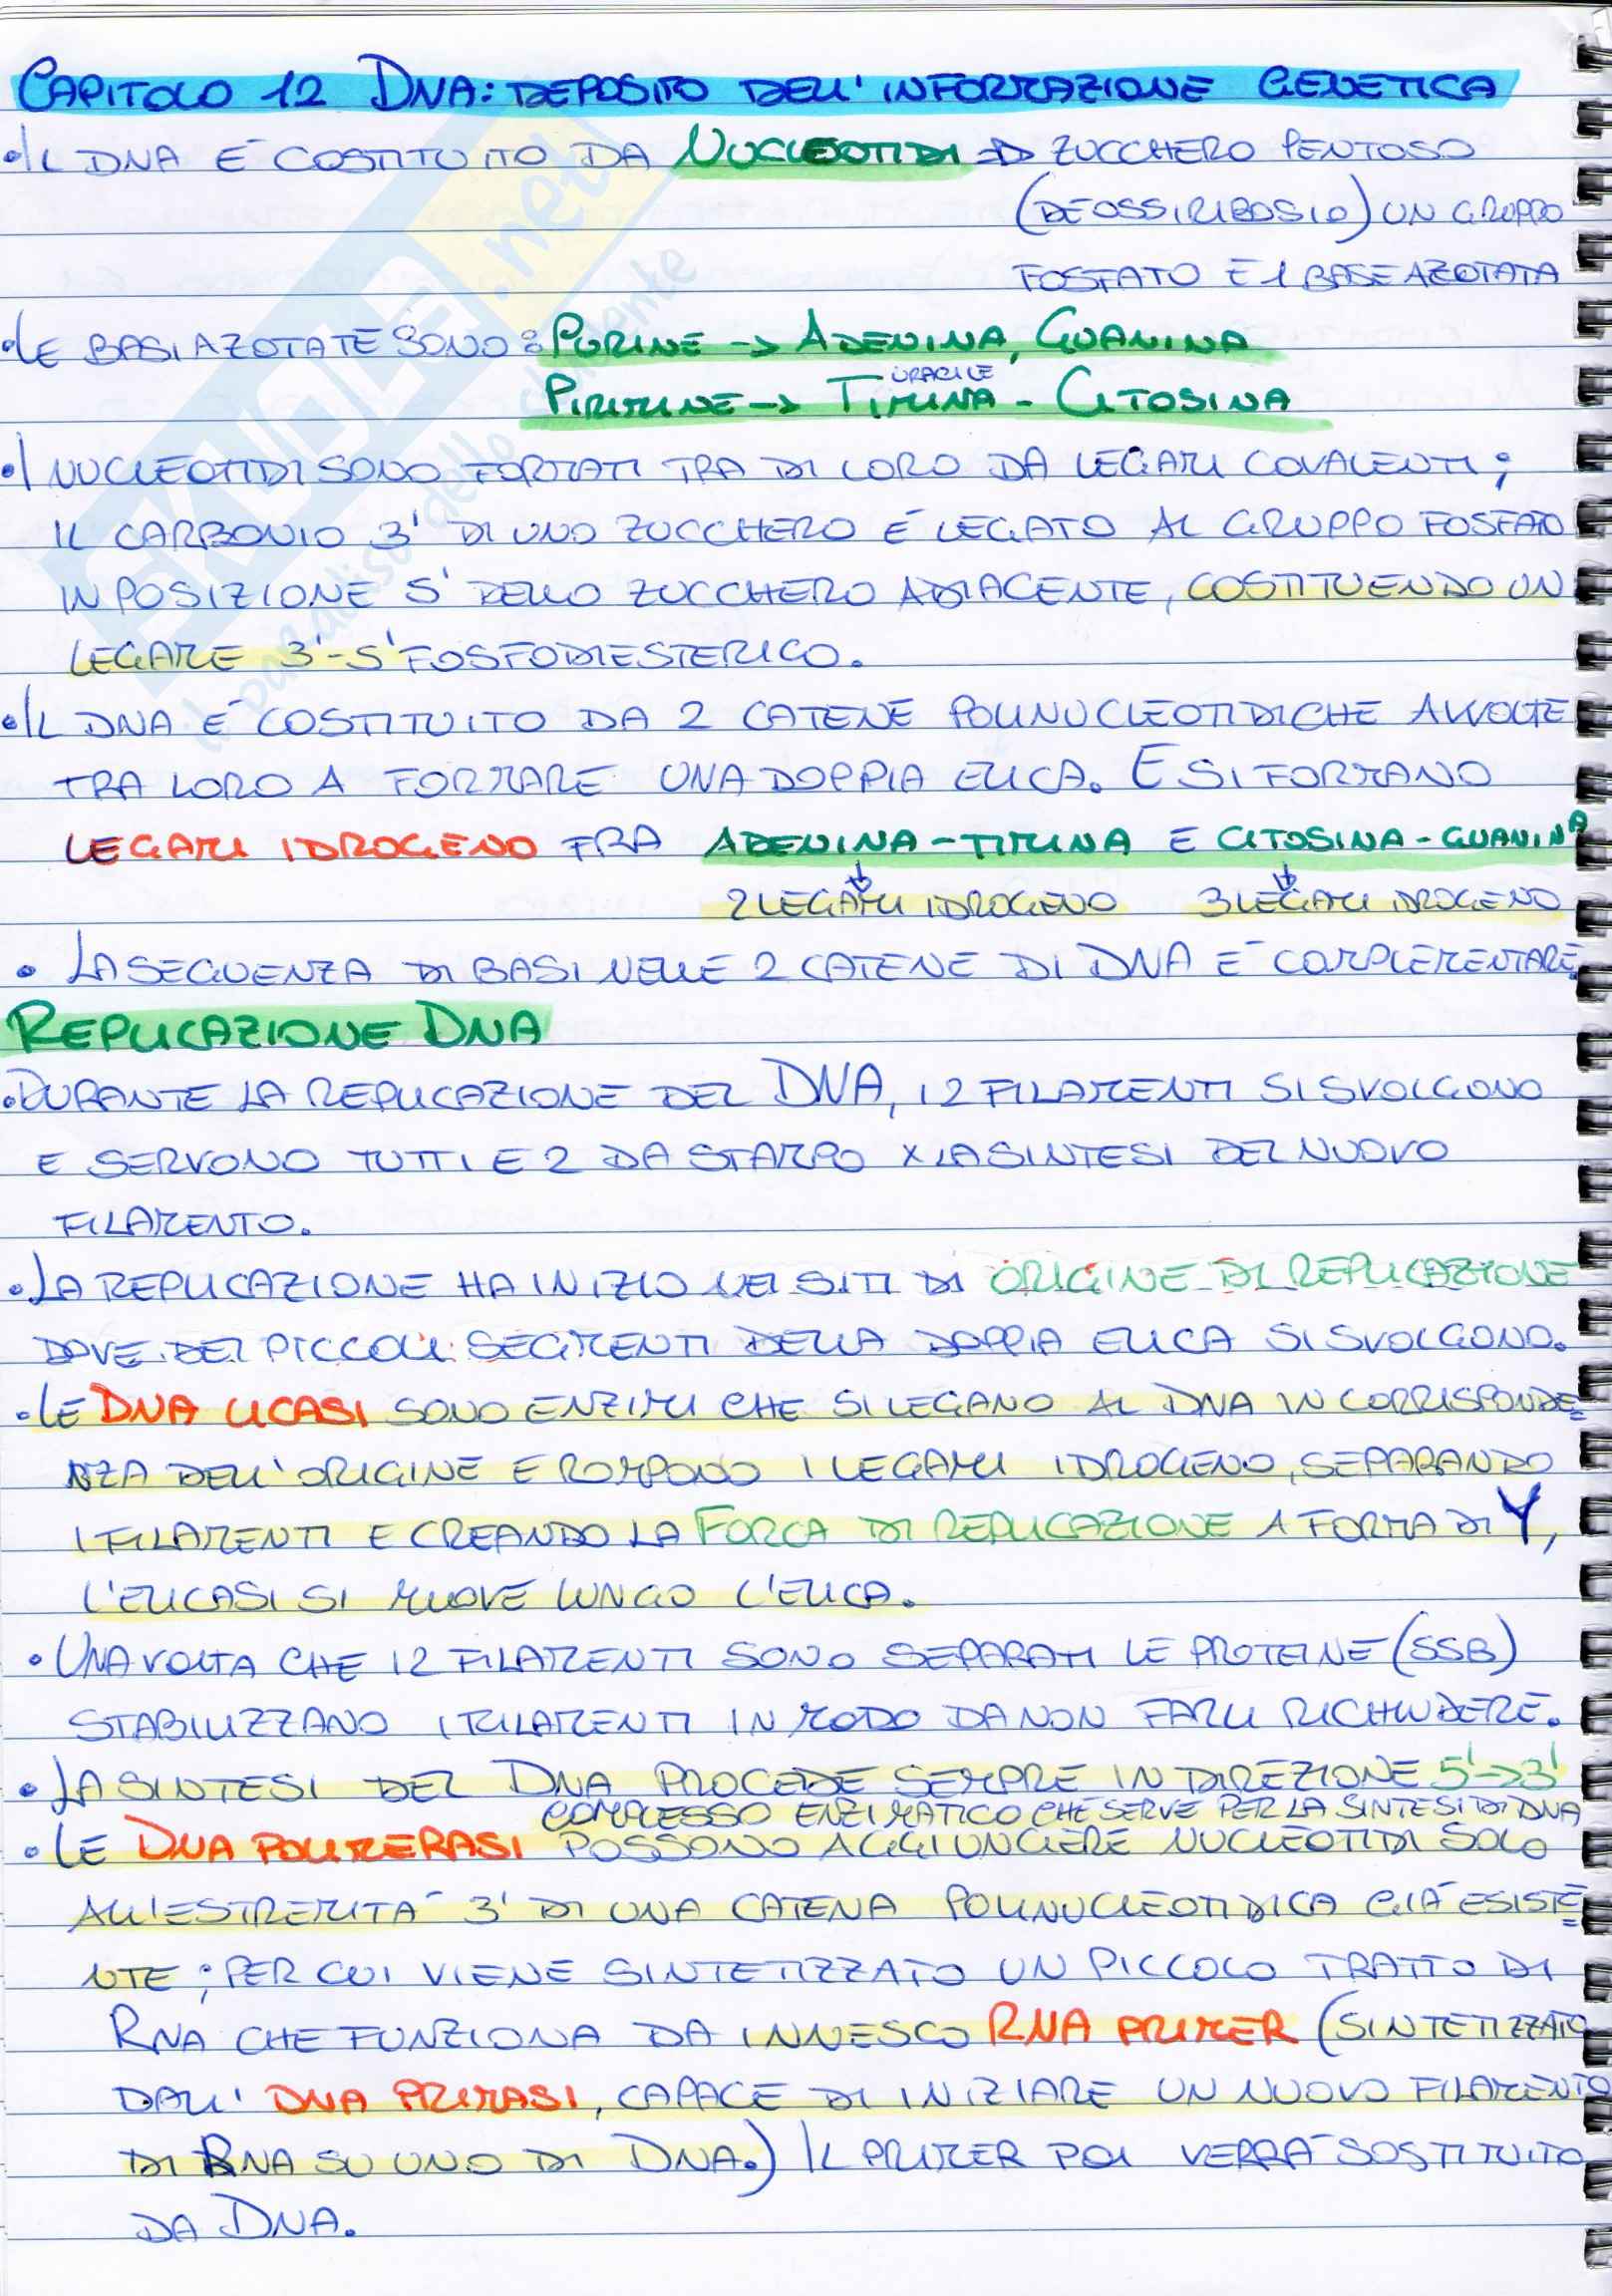 CAPITOLO 12 DNA: DEPOSITO DELL'INFORMAZIONE GENETICA
•IL DNA È COSTITUITO DA NUCLEOTIDI => ZUCCHERO PENTOSO
(DEOSSIRIBOSIO) UN GRUPPO
FOSFATO E 1 BASE AZOTATA
•LE BASI AZOTATE SONO: PURINE -> ADENINA, GUANINA
URACILE
PIRIMINE -> TIMINA - CITOSINA
•I NUCLEOTIDI SONO FORMATI TRA DI LORO DA LEGAMI COVALENTI;
IL CARBONIO 3' DI UNO ZUCCHERO È LEGATO AL GRUPPO FOSFATO
IN POSIZIONE 5' DELLO ZUCCHERO ADIACENTE, COSTITUENDO UN
LEGAME 3'-5' FOSFODIESTERICO.
•IL DNA È COSTITUITO DA 2 CATENE POLINUCLEOTIDICHE AVVOLTE
TRA LORO A FORMARE UNA DOPPIA ELICA. E SI FORMANO
LEGAMI IDROGENO FRA ADENINA-TIMINA E CITOSINA-GUANINA
2 LEGAMI IDROGENO 3 LEGAMI IDROGENO
• LA SEQUENZA DI BASI NELLE 2 CATENE DI DNA È COMPLEMENTARE
REPLICAZIONE DNA
•DURANTE LA REPLICAZIONE DEL DNA, I 2 FILAMENTI SI SVOLGONO
E SERVONO TUTTI E 2 DA STAMPO X LA SINTESI DEL NUOVO
FILAMENTO.
•LA REPLICAZIONE HA INIZIO NEI SITI DI ORIGINE DI REPLICAZIONE
DOVE DEI PICCOLI SEGMENTI DELLA DOPPIA ELICA SI SVOLGONO.
•LE DNA LICASI SONO ENZIMI CHE SI LEGANO AL DNA IN CORRISPONDE=
NZA DELL'ORIGINE E ROMPONO I LEGAMI IDROGENO, SEPARANDO
I FILAMENTI E CREANDO LA FORCA DI REPLICAZIONE A FORMA DI Y,
L'ELICASI SI MUOVE LUNGO L'ELICA.
• UNA VOLTA CHE I 2 FILAMENTI SONO SEPARATI LE PROTEINE (SSB)
STABILIZZANO I FILAMENTI IN MODO DA NON FARLI RICHIUDERE.
• LA SINTESI DEL DNA PROCEDE SEMPRE IN DIREZIONE 5'->3'
COMPLESSO ENZIMATICO CHE SERVE PER LA SINTESI DI DNA
• LE DNA POLIMERASI POSSONO AGGIUNGERE NUCLEOTIDI SOLO
ALL'ESTREMITÀ 3' DI UNA CATENA POLINUCLEOTIDICA GIÀ ESISTE=
NTE; PER CUI VIENE SINTETIZZATO UN PICCOLO TRATTO DI
RNA CHE FUNZIONA DA INNESCO RNA PRIMER (SINTETIZZATO
DALL' DNA PRIMASI, CAPACE DI INIZIARE UN NUOVO FILAMENTO
DI RNA SU UNO DI DNA.) IL PRIMER POI VERRÀ SOSTITUITO
DA DNA.
SKUOLA.net
il paradiso dello studente